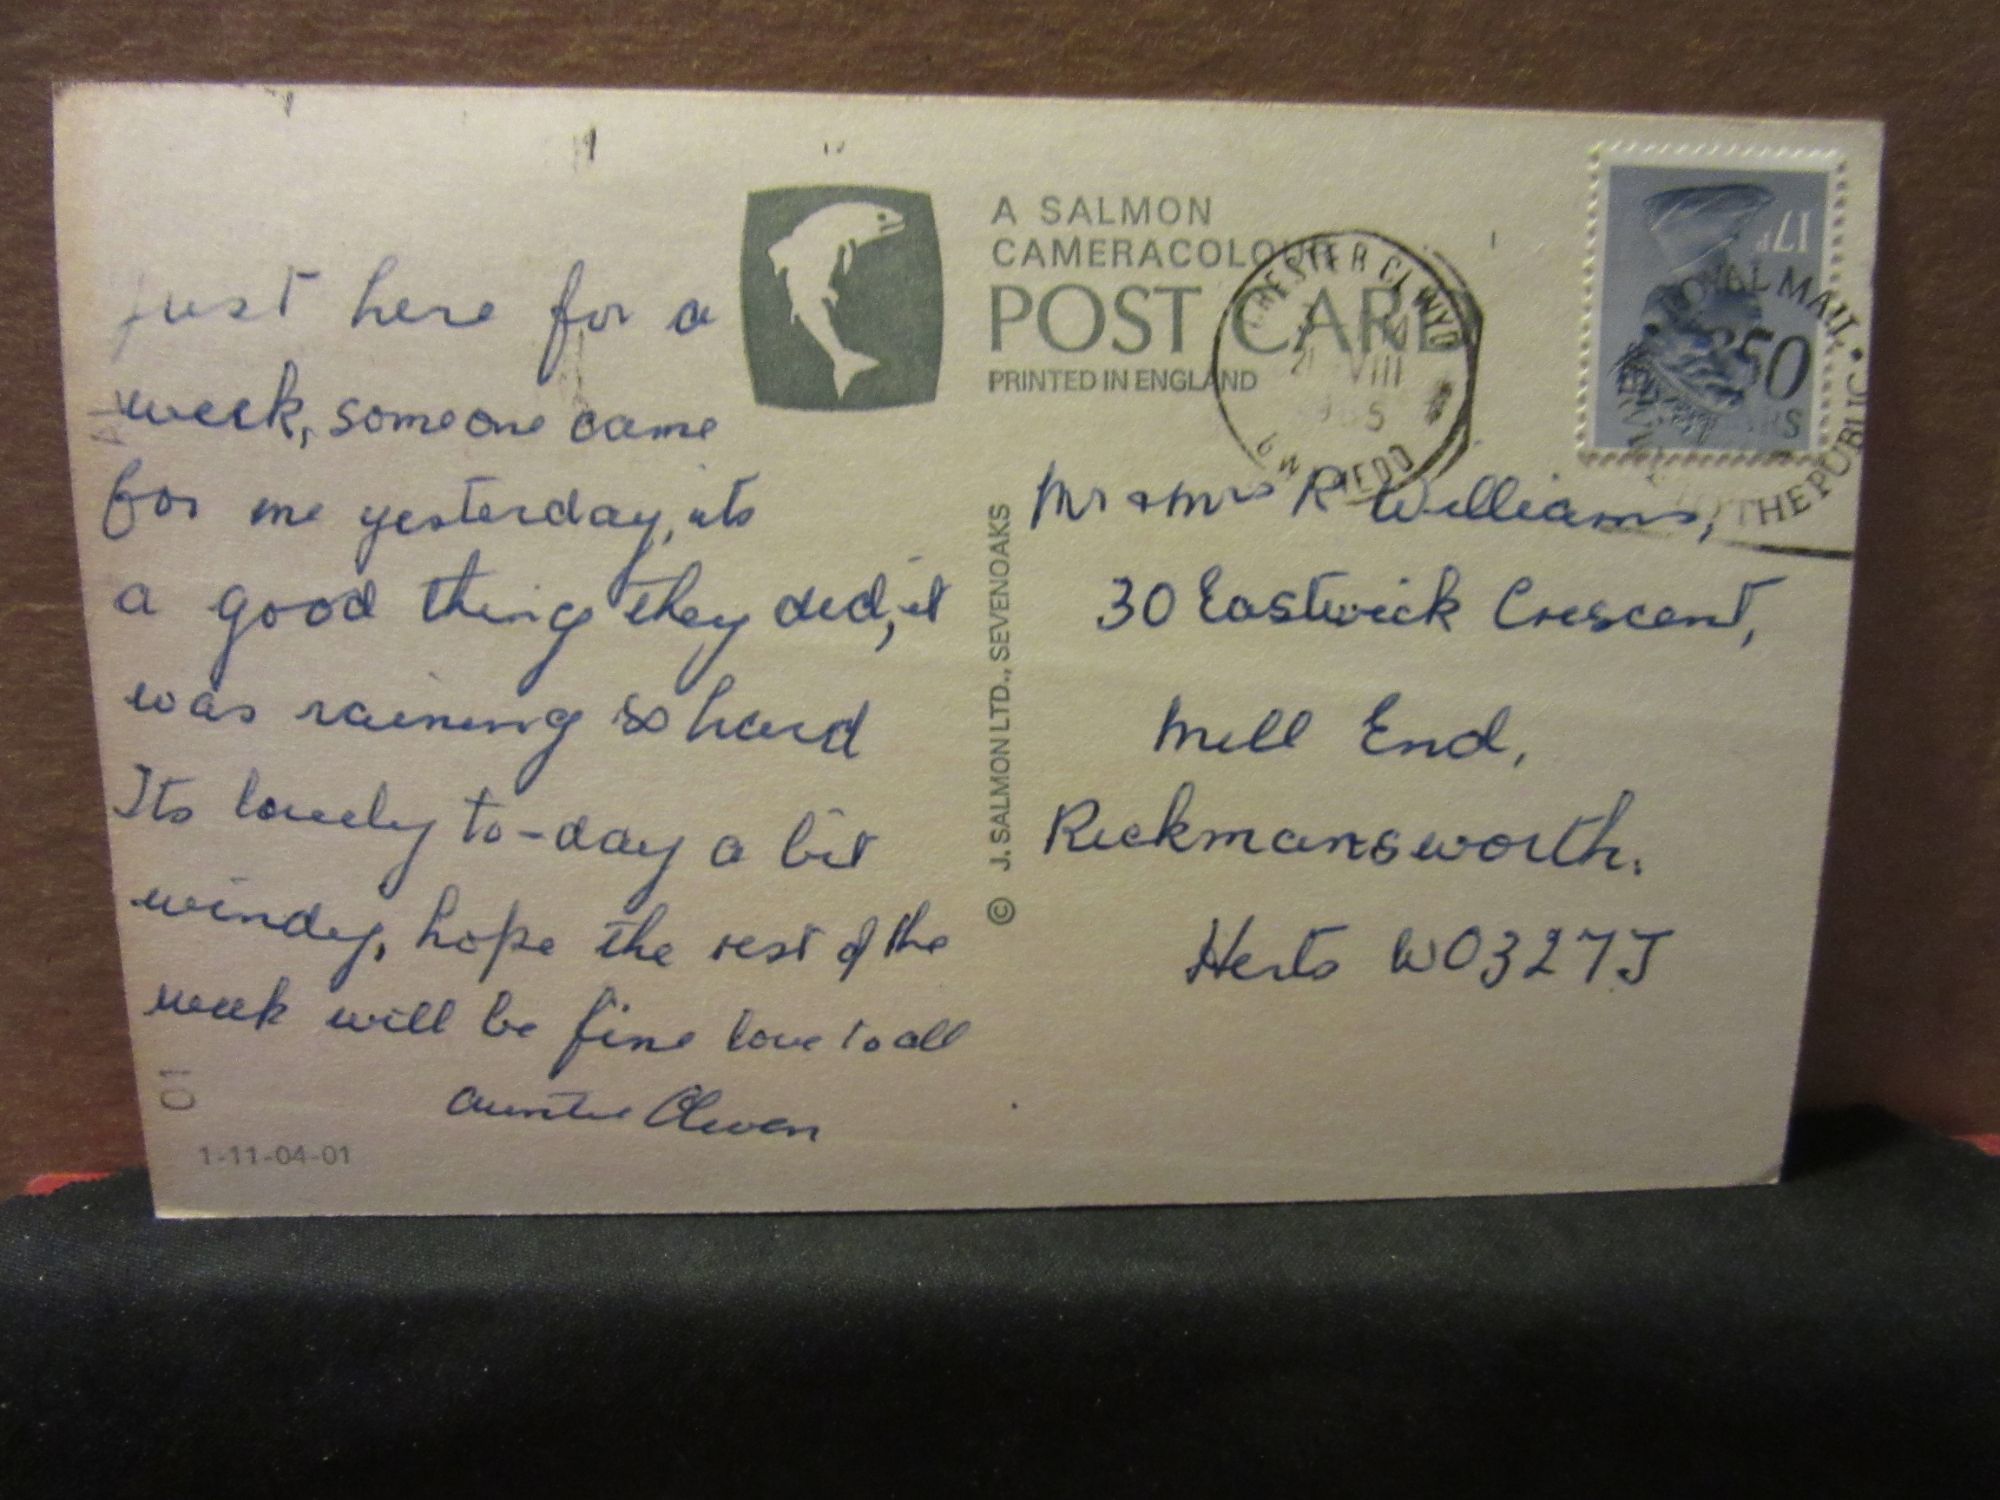 Just here for a
week, someone came
for me yesterday, its
a good thing they did, it
was raining so hard
Its lovely to-day a bit
windy, hope the rest of the
week will be fine love to all
Auntie Olwen
01
1-11-04-01
A SALMON
CAMERACOLOUR
POST CARD
PRINTED IN ENGLAND
© J. SALMON LTD., SEVENOAKS
CHESTER CLWYD
VIII
GWYNEDD
17P
ROYAL MAIL
350
YEARS
THE PUBLIC
Mr & Mrs R Williams,
30 Eastwick Crescent,
Mill End,
Rickmansworth.
Herts WD3 2YJ